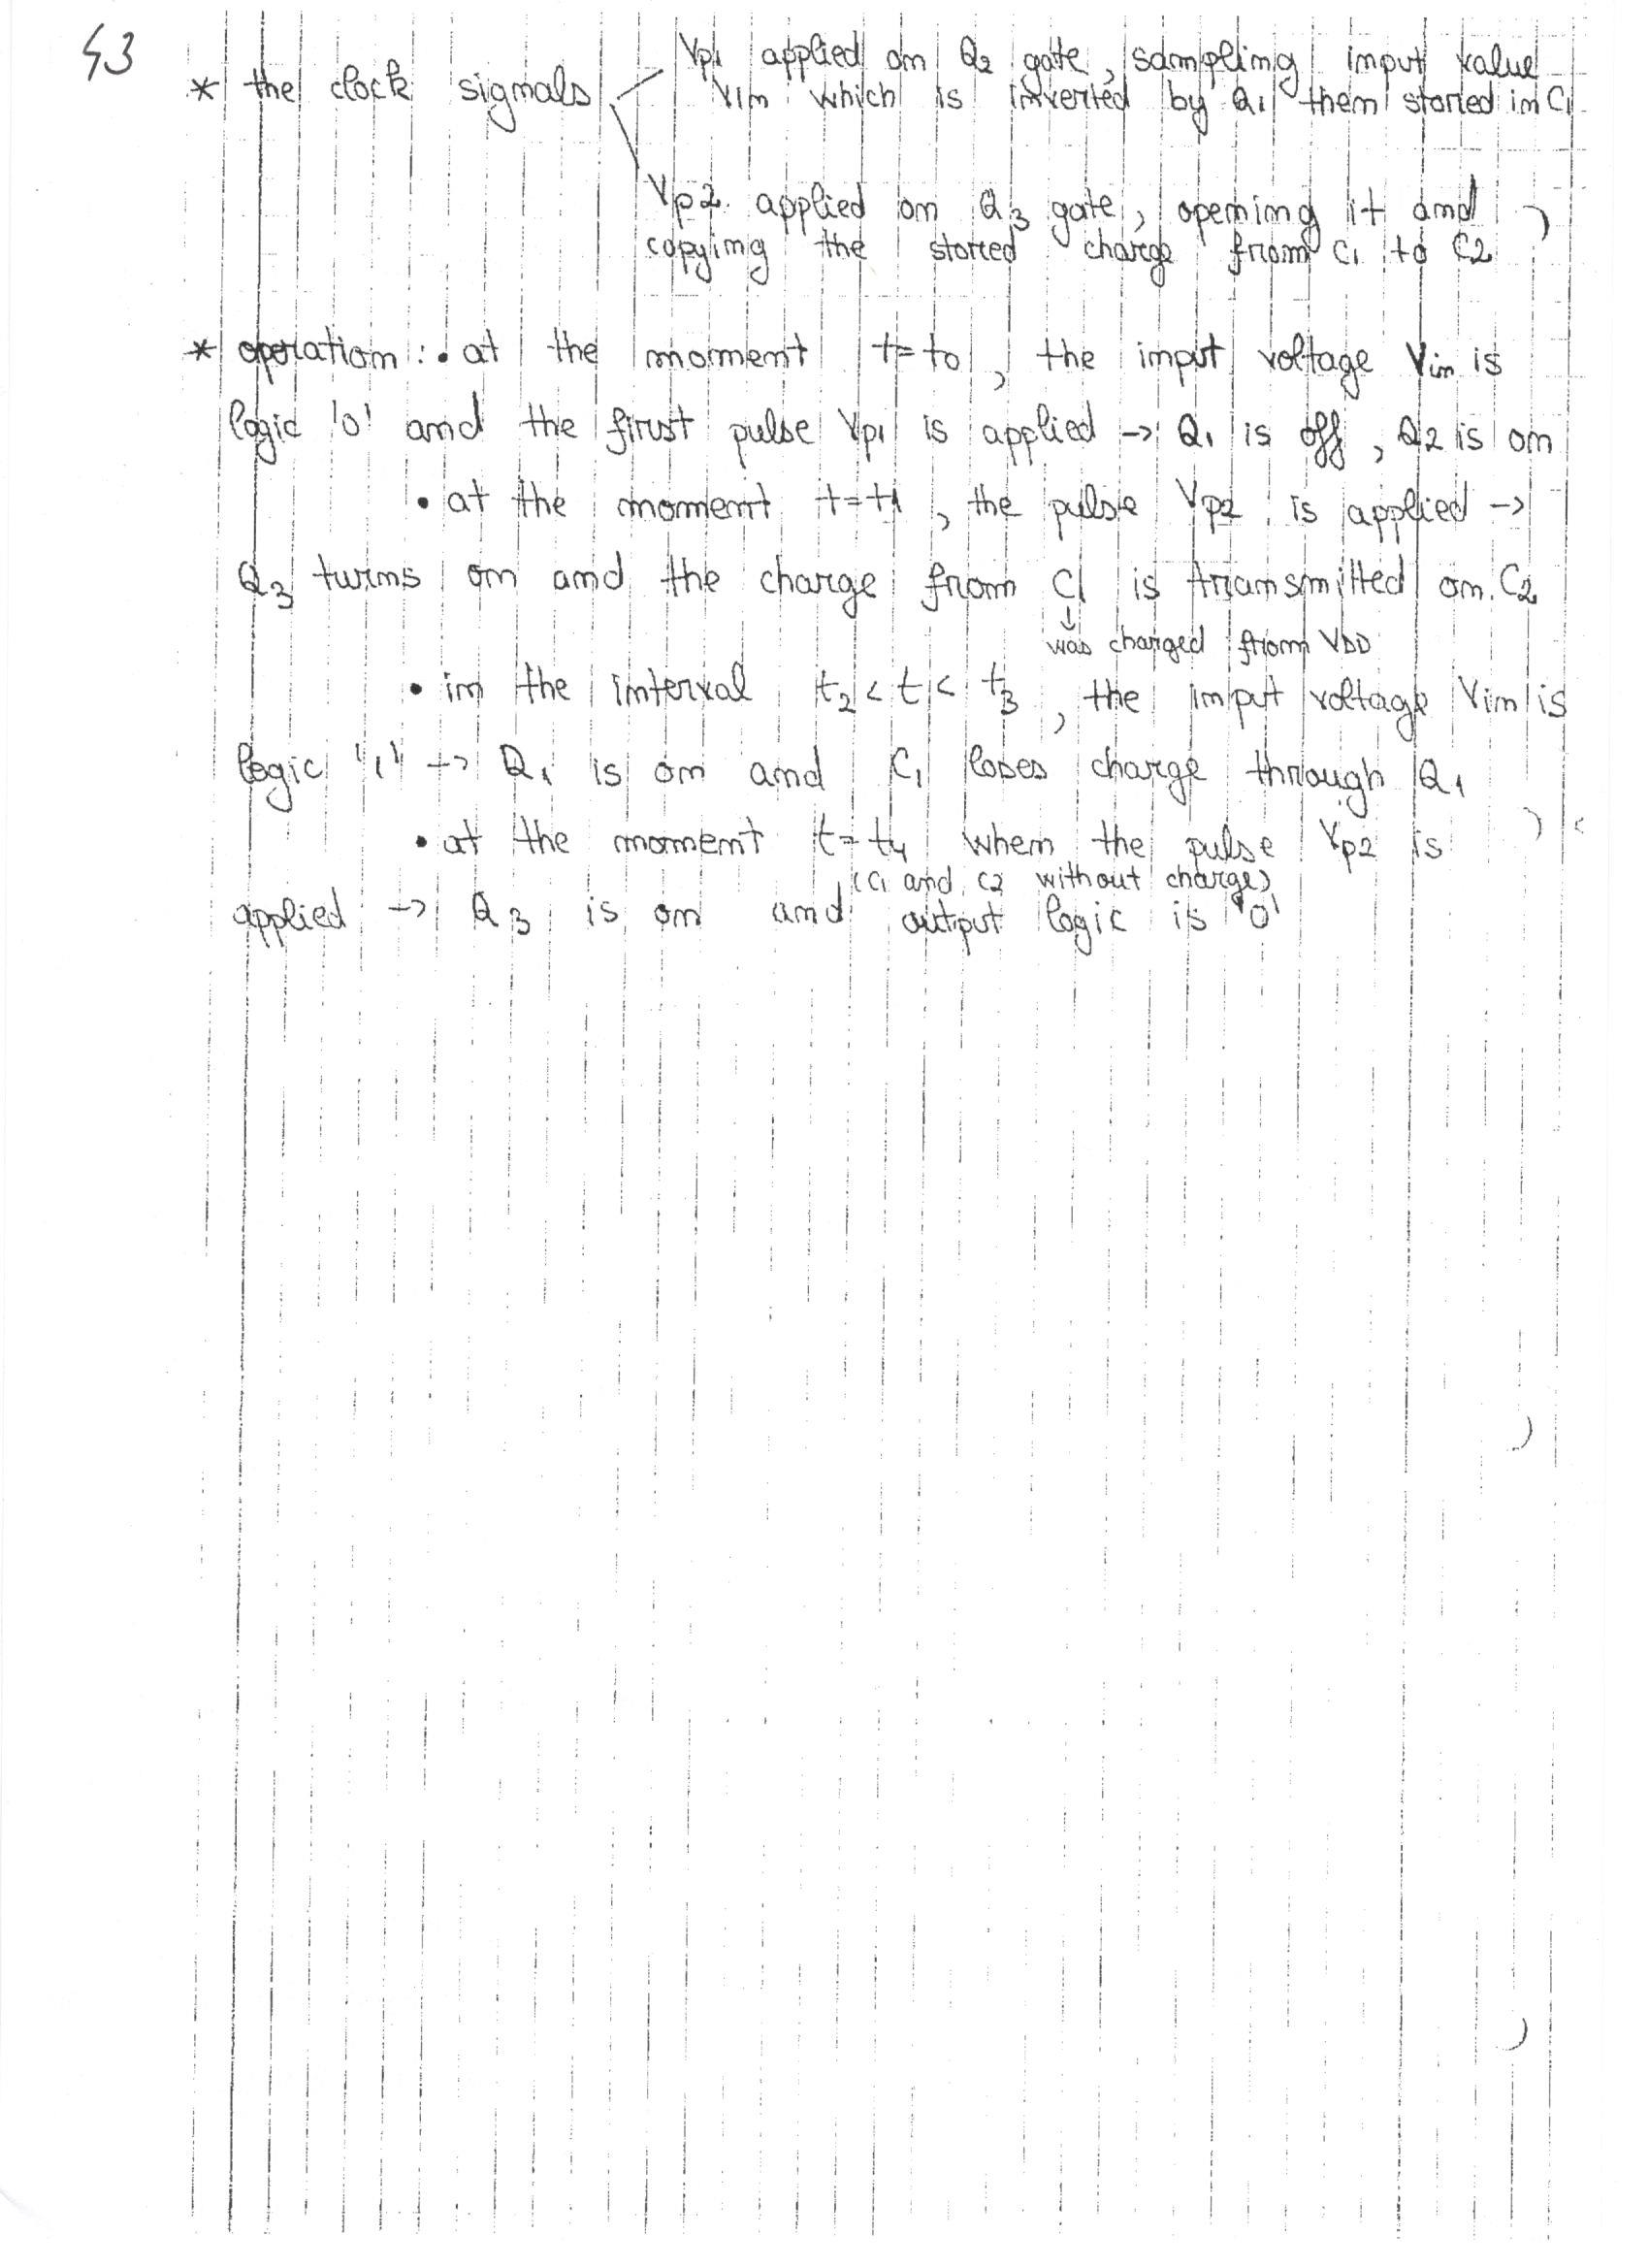 43
Vp1 applied on Q2 gate, sampling input value
* the clock signals Vin which is inverted by Q1 then stored in C1
Vp2 applied on Q3 gate, opening it and
copying the stored charge from C1 to C2
* operation: • at the moment t=t0, the input voltage Vin is
logic '0' and the first pulse Vp1 is applied -> Q1 is off, Q2 is on
• at the moment t=t1, the pulse Vp2 is applied ->
Q3 turns on and the charge from C1 is transmitted on C2
↓
was charged from VDD
• in the interval t2 < t < t3, the input voltage Vin is
logic '1' -> Q1 is on and C1 loses charge through Q1
• at the moment t=t4 when the pulse Vp2 is
(C1 and C2 without charge)
applied -> Q3 is on and output logic is '0'